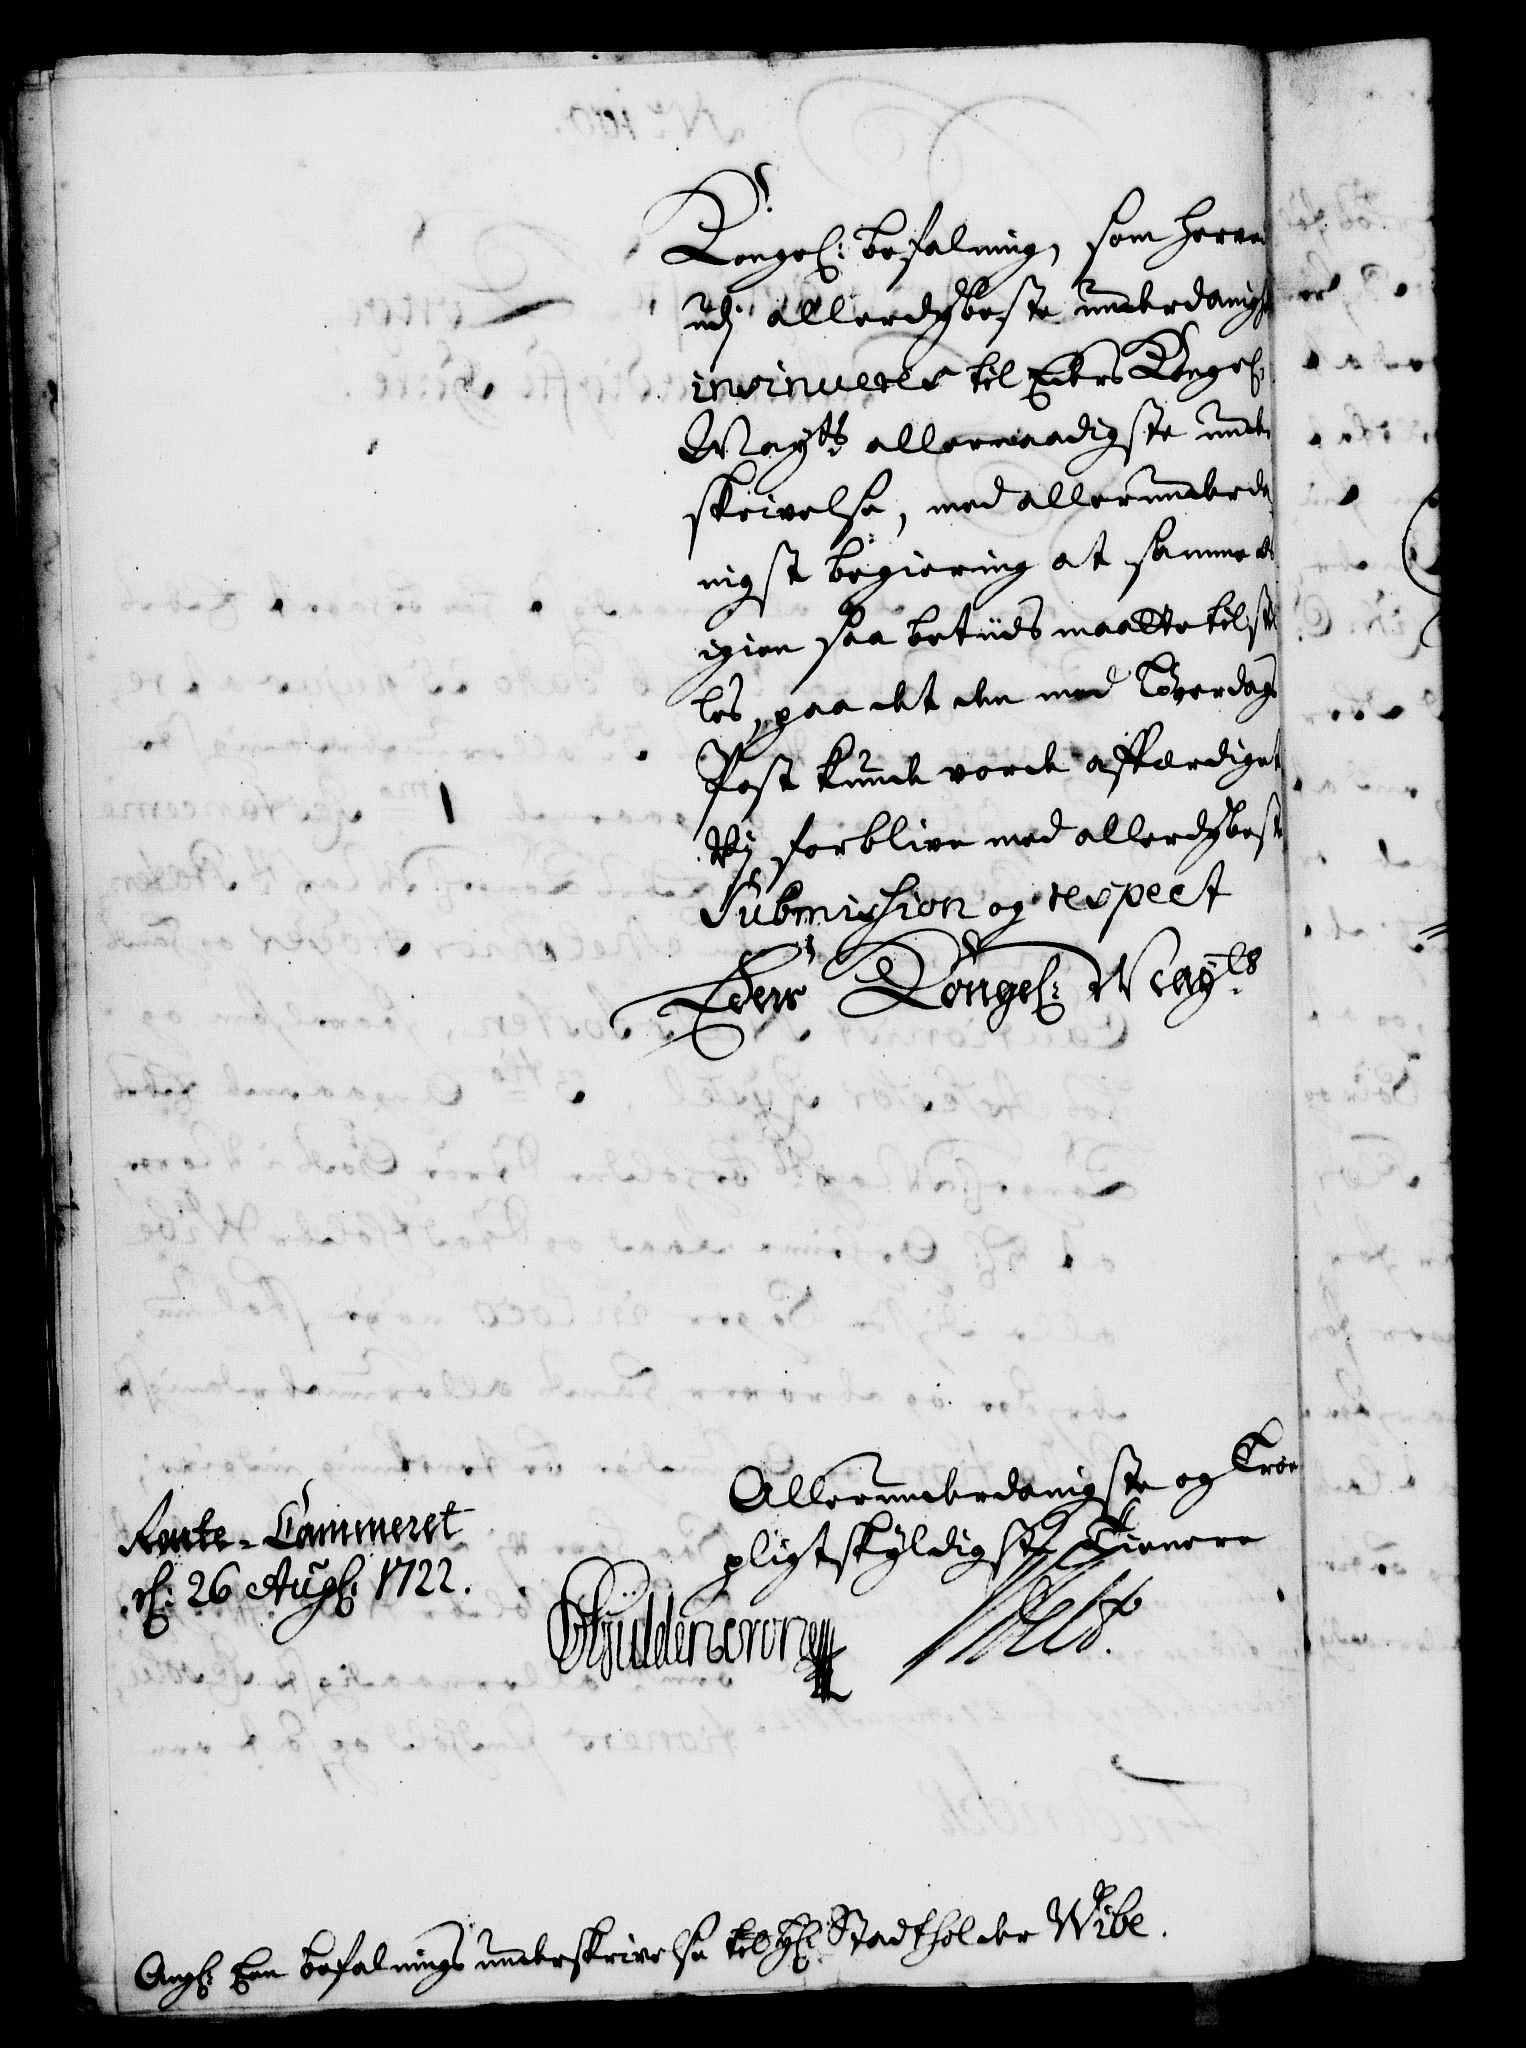 Kongel: befalning, som herved
udj allerdÿbeste underdanigh
insinueres til Eders Kongel:
Mayts allernaadigste under
skrivelse, med allerunderda
nigst begiering at samme os
igien saa betiids maatte tilstil
les, paa det den med Løverdags
Post kunde vorde affærdiget
Vj forblive med allerdÿbeste
Submission og respect
Eders Kongel: Mayts
Allerunderdanigste og Troe
pligtskyldigste Tienere
Rente-Cammeret
d: 26 Augl: 1722.
Güldencrone
Angl: Een befalnings underskrivelse til Hl: Stadtholder Wibe.